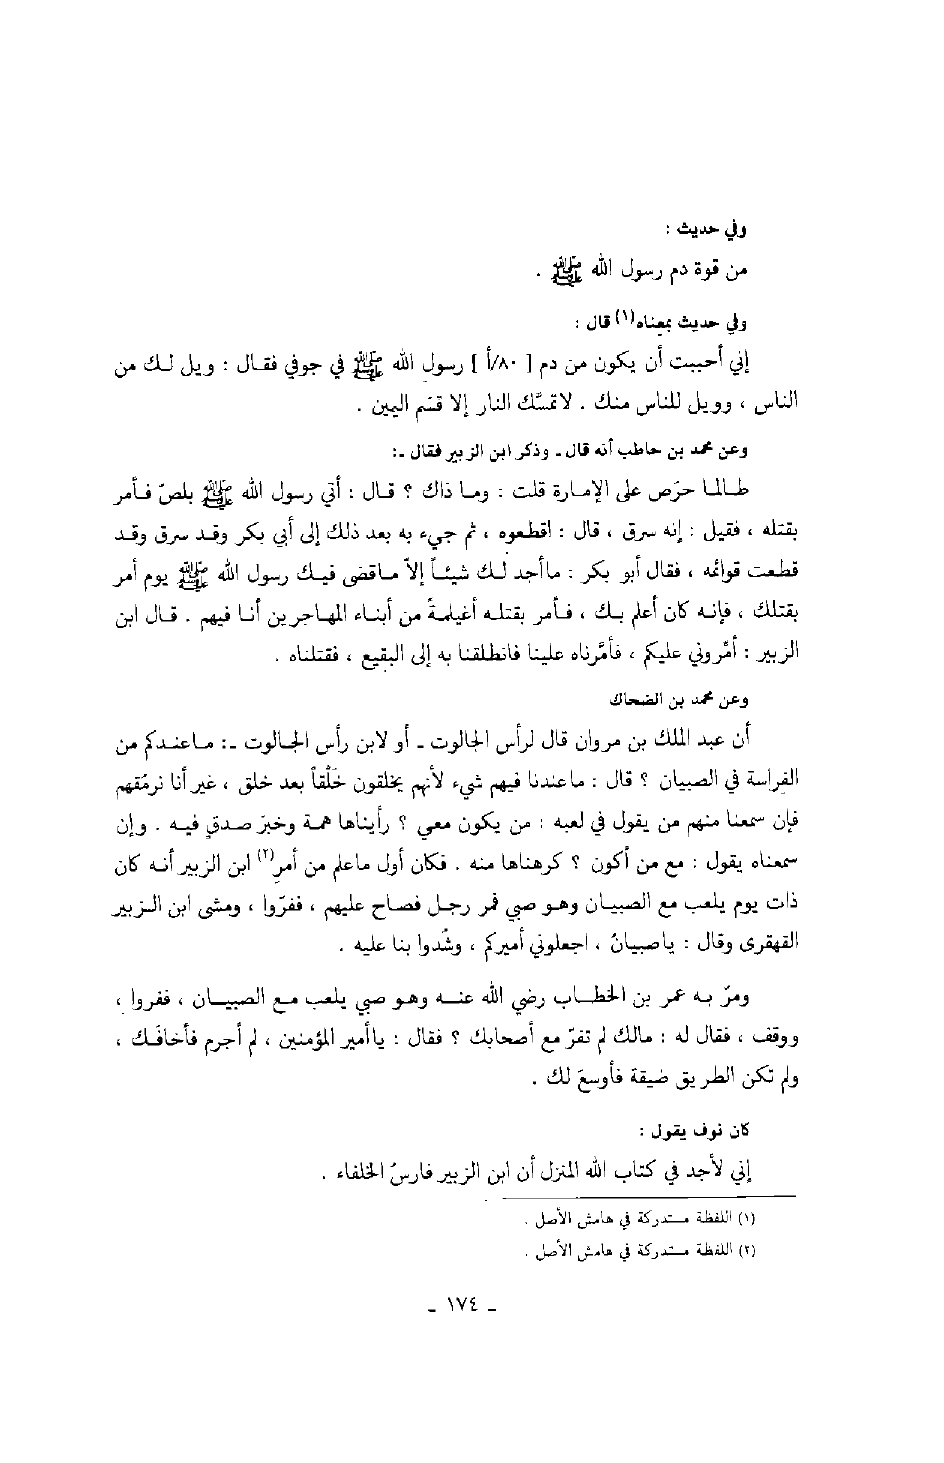 وفي حديث :
من قوة دم رسول الله ﷺ .
وفي حديث بمعناه(١) قال :
إني أحببت أن يكون من دم [ ٨٠/أ ] رسول الله ﷺ في جوفي فقال : ويل لك من
الناس ، وويل للناس منك . لاتمسَّك النار إلا قسَم اليمين .
وعن محمد بن حاطب أنه قال ـ وذكر ابن الزبير فقال ـ:
طالما حرَص على الإمارة قلت : وما ذاك ؟ قال : أُتي رسول الله ﷺ بلصّ فأمر
بقتله ، فقيل : إنه سرق ، قال : اقطعوه ، ثم جيء به بعد ذلك إلى أبي بكر وقد سرق وقد
قطعت قوائمه ، فقال أبو بكر : ماأجد لك شيئاً إلاّ ماقضى فيك رسول الله ﷺ يوم أمر
بقتلك ، فإنه كان أعلم بك ، فأمر بقتله أغيلمةً من أبناء المهاجرين أنا فيهم . قال ابن
الزبير : أمّروني عليكم ، فأمَّرناه علينا فانطلقنا به إلى البقيع ، فقتلناه .
وعن محمد بن الضحاك
أن عبد الملك بن مروان قال لرأس الجالوت ـ أو لابن رأس الجالوت ـ: ماعندكم من
الفراسة في الصبيان ؟ قال : ماعندنا فيهم شيء لأنهم يخلقون خَلْقاً بعد خلق ، غير أنا نرمُقهم
فإن سمعنا منهم من يقول في لعبه : من يكون معي ؟ رأيناها همة وخبرَ صدقٍ فيه . وإن
سمعناه يقول : مع من أكون ؟ كرهناها منه . فكان أول ماعلم من أمرِ(٢) ابن الزبير أنه كان
ذات يوم يلعب مع الصبيان وهو صبي فمر رجل فصاح عليهم ، ففرّوا ، ومشى ابن الزبير
القهقرى وقال : ياصبيانُ ، اجعلوني أميركم ، وشُدوا بنا عليه .
ومرّ به عمر بن الخطاب رضي الله عنه وهو صبي يلعب مع الصبيان ، ففروا ،
ووقف ، فقال له : مالك لم تفرّ مع أصحابك ؟ فقال : ياأمير المؤمنين ، لم أجرم فأخافَك ،
ولم تكن الطريق ضيقة فأوسعَ لك .
كان نوف يقول :
إني لأجد في كتاب الله المنزل أن ابن الزبير فارسُ الخلفاء .
(١) اللفظة مستدركة في هامش الأصل .
(٢) اللفظة مستدركة في هامش الأصل .
ـ ١٧٤ ـ